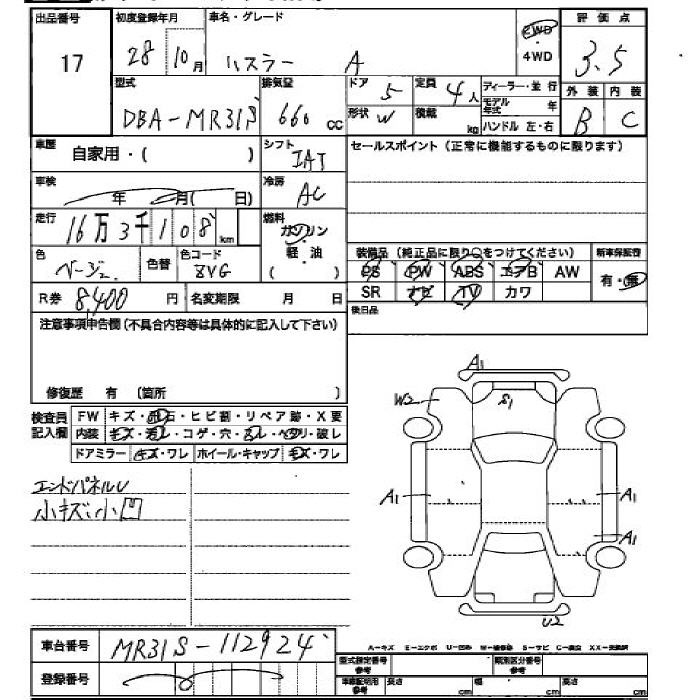 出品番号 初度登録年月 車名・グレード 評価点
17 28 10月 ハスラー A 2WD・4WD 3.5
型式 排気量 ドア 定員 ディーラー・並行 外装 内装
DBA-MR31S 660cc 5 4人 モデル年式 年 B C
形状 W 積載 kg ハンドル 左・右
車歴 自家用・( ) シフト IAT セールスポイント(正常に機能するものに限ります)
車検 年 月( 日) 冷房 AC
走行 16万3千108km 燃料 ガソリン・軽油( )
色 ベージュ 色替 色コード ZVG 装備品(純正品に限り○をつけてください) 新車保証書
PS PW ABS エアB AW 有・無
R券 8,400円 名変期限 月 日 SR ナビ TV カワ
注意事項申告欄(不具合内容等は具体的に記入して下さい) 後日品
修復歴 有 (箇所 )
検査員記入欄 FW キズ・飛石・ヒビ割・リペア跡・X要
内装 キズ・汚レ・コゲ・穴・スレ・ヘタリ・破レ
ドアミラー キズ・ワレ ホイール・キャップ キズ・ワレ
エンドパネルU
小キズ小凹
A1
W2 S1
A1 A1
A1
U2
車台番号 MR31S-112924
A-キズ E-エクボ U-凹み W-補修跡 S-サビ C-腐食 XX-交換済
登録番号 型式指定番号 参考 類別区分番号 参考
車庫証明用 参考 長さ cm 幅 cm 高さ cm